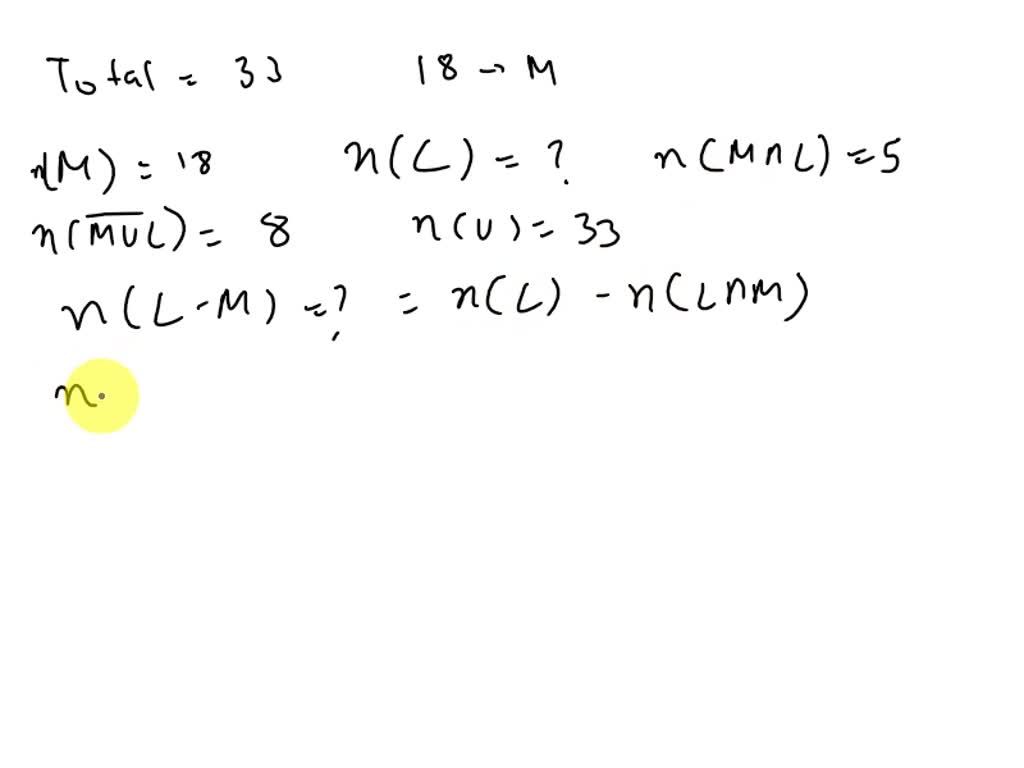 Total = 33 18 → M
n(M) = 18 n(L) = ? n(M∩L) = 5
n(M̅U̅L̅) = 8 n(U) = 33
n(L-M) = ? = n(L) - n(L∩M)
n